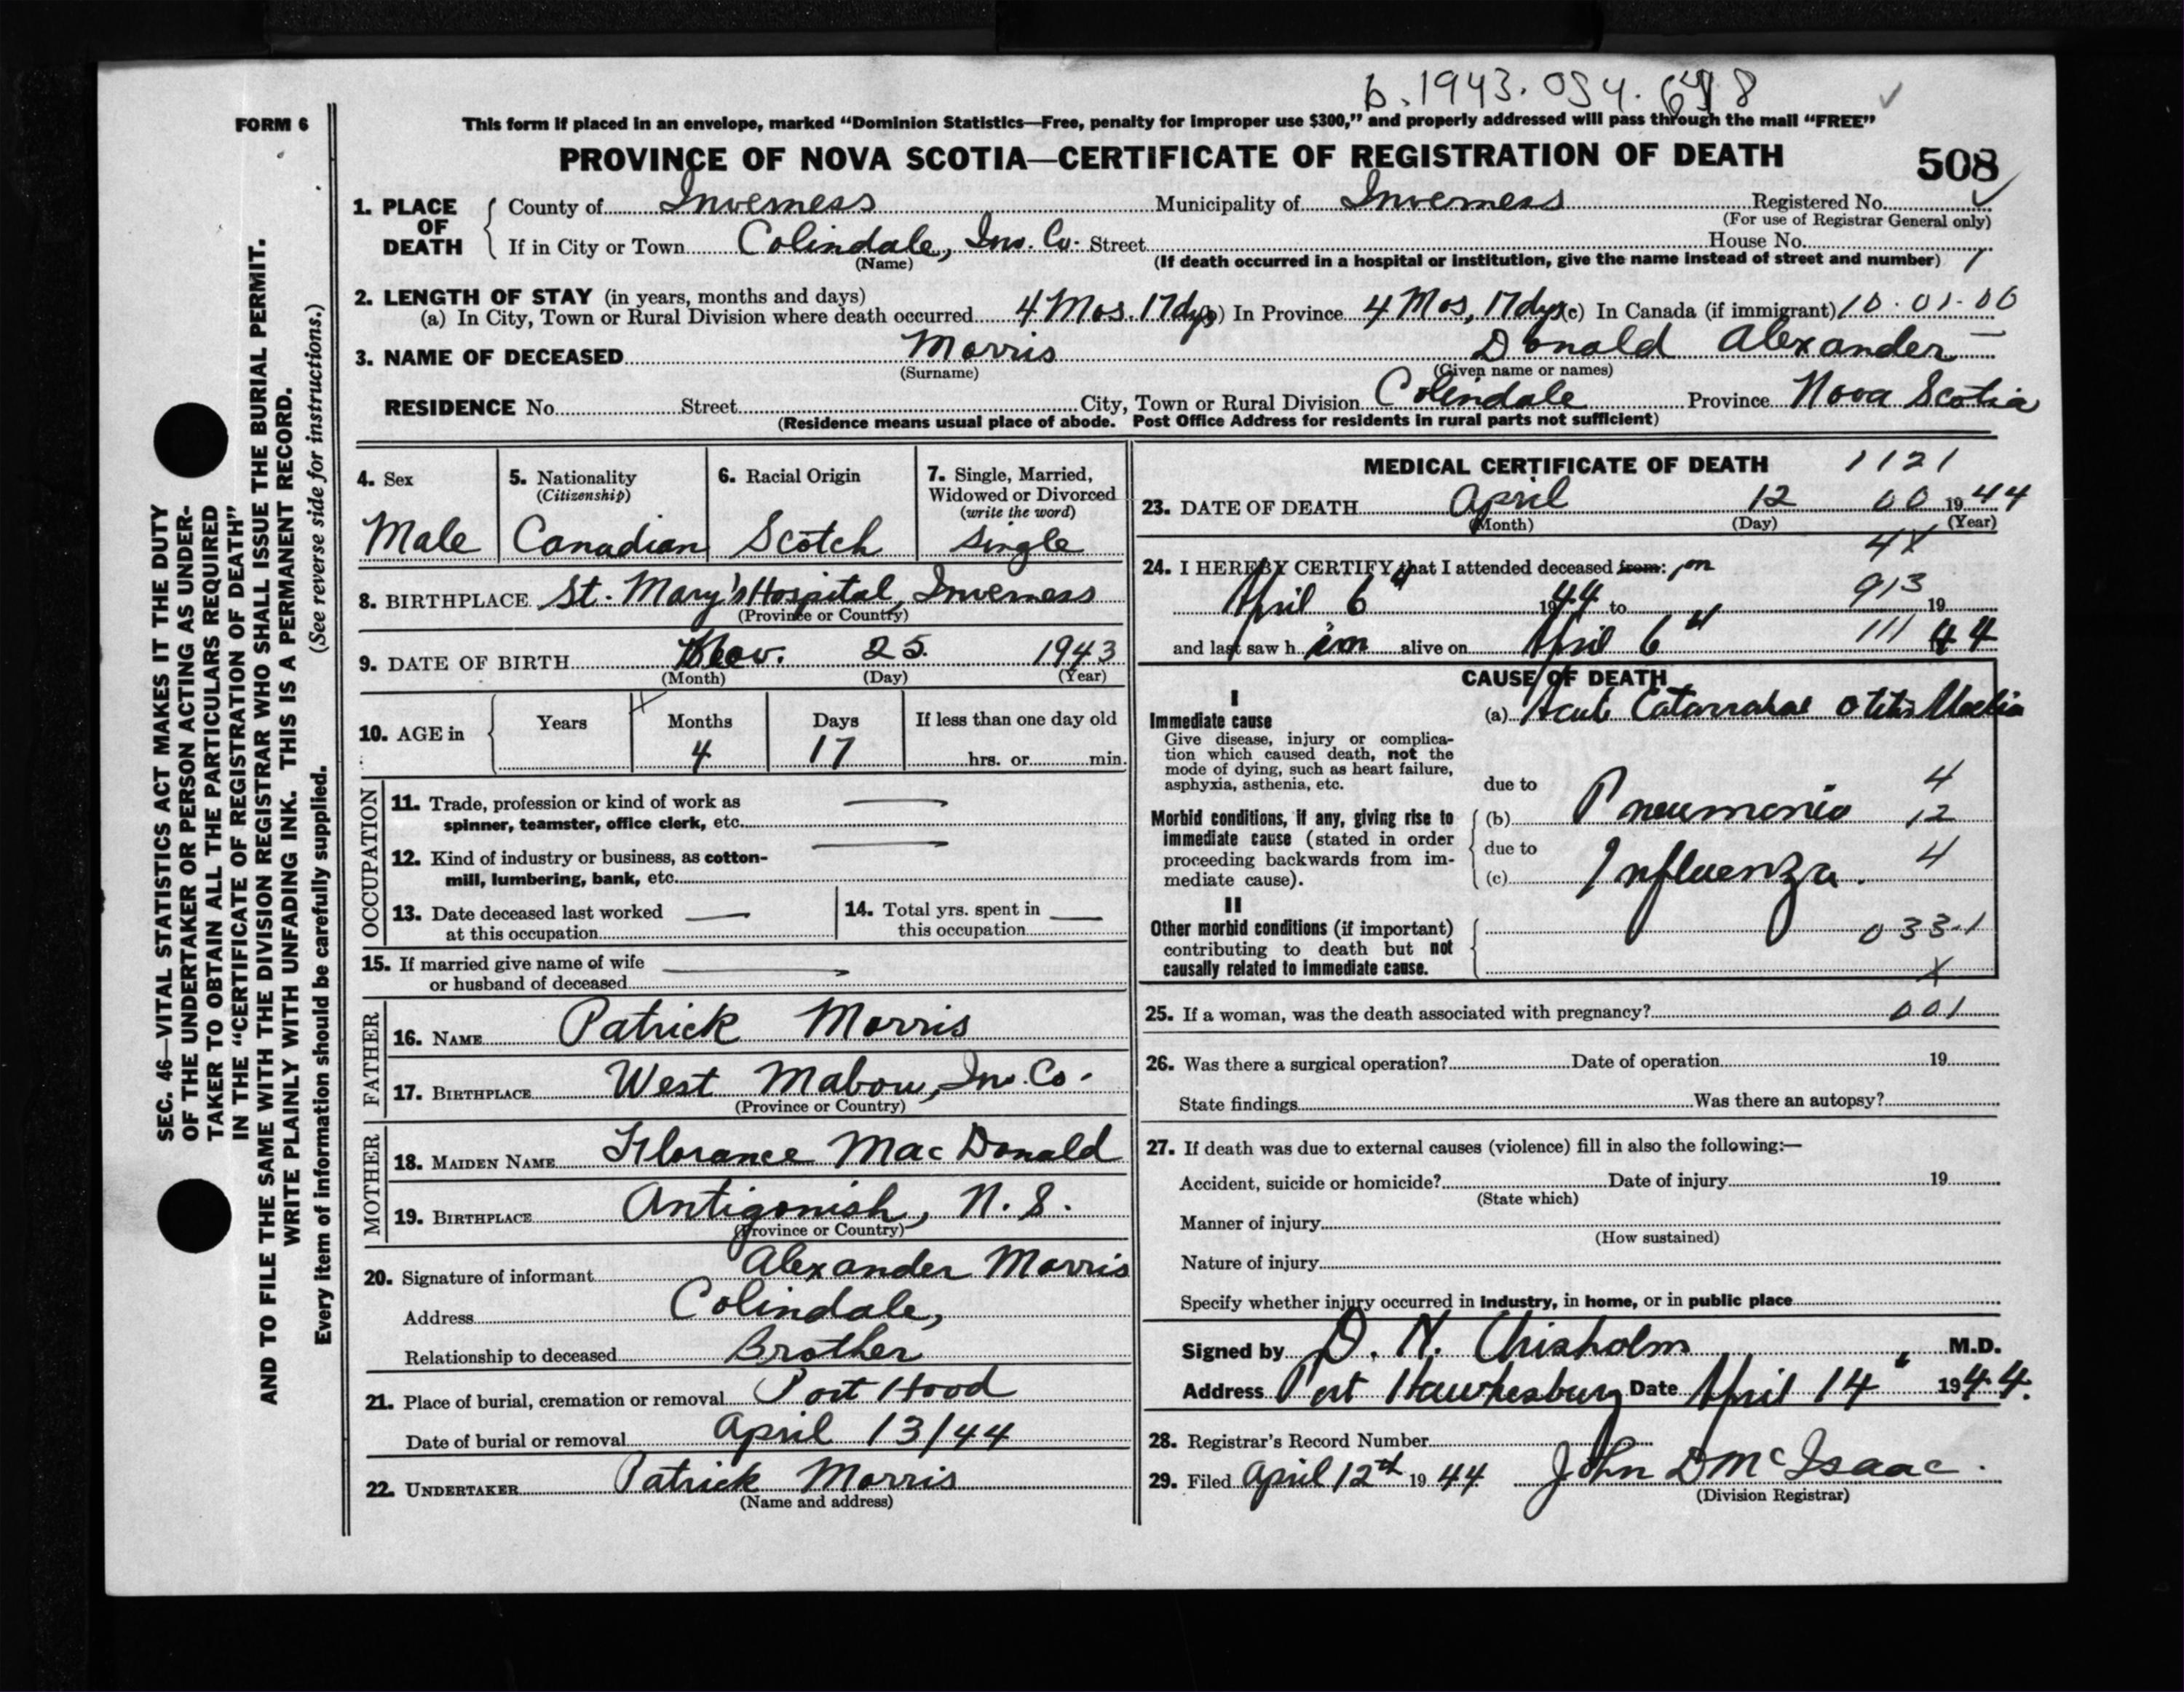 b. 1943. 054. 8
FORM 6
This form if placed in an envelope, marked “Dominion Statistics—Free, penalty for improper use $300,” and properly addressed will pass through the mail “FREE”
PROVINCE OF NOVA SCOTIA—CERTIFICATE OF REGISTRATION OF DEATH
508
1. PLACE OF DEATH
County of Inverness Municipality of Inverness Registered No.
(For use of Registrar General only)
If in City or Town Colindale, Inv. Co. Street House No.
(Name) (If death occurred in a hospital or institution, give the name instead of street and number)
2. LENGTH OF STAY (in years, months and days)
(a) In City, Town or Rural Division where death occurred 4 Mos. 17 dys (b) In Province 4 Mos, 17 dys (c) In Canada (if immigrant) 10.01.00
3. NAME OF DECEASED Morris Donald Alexander
(Surname) (Given name or names)
RESIDENCE No. Street City, Town or Rural Division Colindale Province Nova Scotia
(Residence means usual place of abode. Post Office Address for residents in rural parts not sufficient)
4. Sex
Male
5. Nationality
(Citizenship)
Canadian
6. Racial Origin
Scotch
7. Single, Married,
Widowed or Divorced
(write the word)
Single
8. BIRTHPLACE St. Mary's Hospital, Inverness
(Province or Country)
9. DATE OF BIRTH Nov. 25. 1943
(Month) (Day) (Year)
10. AGE in Years Months Days If less than one day old
4 17 hrs. or min.
OCCUPATION
11. Trade, profession or kind of work as
spinner, teamster, office clerk, etc.
12. Kind of industry or business, as cotton-
mill, lumbering, bank, etc.
13. Date deceased last worked
at this occupation
14. Total yrs. spent in
this occupation
15. If married give name of wife
or husband of deceased
FATHER
16. NAME Patrick Morris
17. BIRTHPLACE West Mabou, Inv. Co.
(Province or Country)
MOTHER
18. MAIDEN NAME Florance MacDonald
19. BIRTHPLACE Antigonish, N. S.
(Province or Country)
20. Signature of informant Alexander Morris
Address Colindale,
Relationship to deceased Brother
21. Place of burial, cremation or removal Port Hood
Date of burial or removal April 13/44
22. UNDERTAKER Patrick Morris
(Name and address)
MEDICAL CERTIFICATE OF DEATH 1121
23. DATE OF DEATH April 12 00 1944
(Month) (Day) (Year)
4X
24. I HEREBY CERTIFY that I attended deceased from: on
April 6 1944 to 913 19
and last saw him alive on April 6 111 44
CAUSE OF DEATH
I
Immediate cause
Give disease, injury or complica-
tion which caused death, not the
mode of dying, such as heart failure,
asphyxia, asthenia, etc.
(a) Acute Catarrahal otitis Media
due to 4
Morbid conditions, if any, giving rise to
immediate cause (stated in order
proceeding backwards from im-
mediate cause).
(b) Pneumonia 12
due to 4
(c) Influenza.
II
Other morbid conditions (if important)
contributing to death but not
causally related to immediate cause.
033.1
X
25. If a woman, was the death associated with pregnancy? 001
26. Was there a surgical operation? Date of operation 19
State findings Was there an autopsy?
27. If death was due to external causes (violence) fill in also the following:—
Accident, suicide or homicide? Date of injury 19
(State which)
Manner of injury
(How sustained)
Nature of injury
Specify whether injury occurred in industry, in home, or in public place
Signed by D. N. Chisholm, M.D.
Address Port Hawkesbury Date April 14 1944.
28. Registrar's Record Number
29. Filed April 12th 1944 John D McIsaac.
(Division Registrar)
SEC. 46—VITAL STATISTICS ACT MAKES IT THE DUTY
OF THE UNDERTAKER OR PERSON ACTING AS UNDER-
TAKER TO OBTAIN ALL THE PARTICULARS REQUIRED
IN THE “CERTIFICATE OF REGISTRATION OF DEATH”
AND TO FILE THE SAME WITH THE DIVISION REGISTRAR WHO SHALL ISSUE THE BURIAL PERMIT.
WRITE PLAINLY WITH UNFADING INK. THIS IS A PERMANENT RECORD.
Every item of information should be carefully supplied. (See reverse side for instructions.)